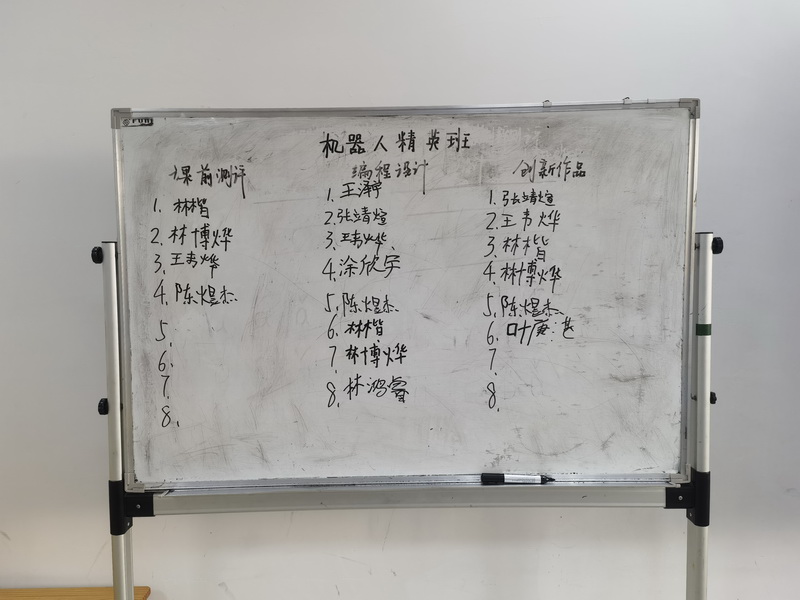 机器人精英班
课前测评
1. 林楷
2. 林博烨
3. 王韦烨
4. 陈煜杰
5.
6.
7.
8.
编程设计
1. 王泽宇
2. 张靖煊
3. 王韦烨
4. 涂欣宇
5. 陈煜杰
6. 林楷
7. 林博烨
8. 林鸿睿
创新作品
1. 张靖煊
2. 王韦烨
3. 林楷
4. 林博烨
5. 陈煜杰
6. 叶
7.
8.